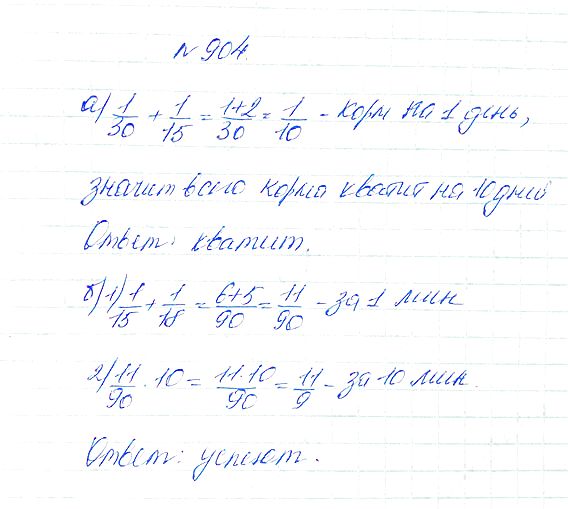 № 904.
а) 1/30 + 1/15 = 1+2/30 = 1/10 - корм на 1 день,
значит всего корма хватит на 10 дней
Ответ: хватит.
б) 1) 1/15 + 1/18 = 6+5/90 = 11/90 - за 1 мин
2) 11/90 · 10 = 11·10/90 = 11/9 - за 10 мин.
Ответ: успеют.